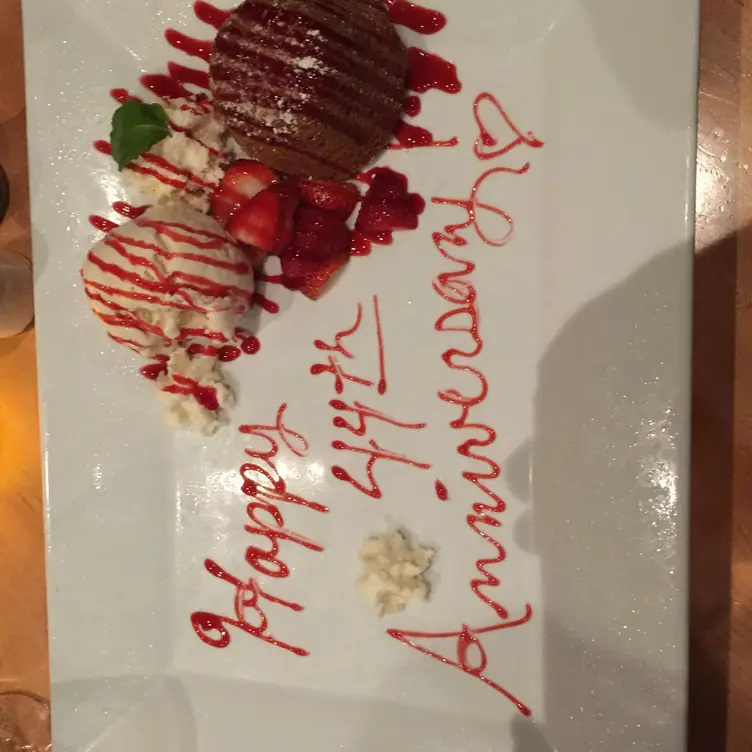 Happy
44th
Anniversary